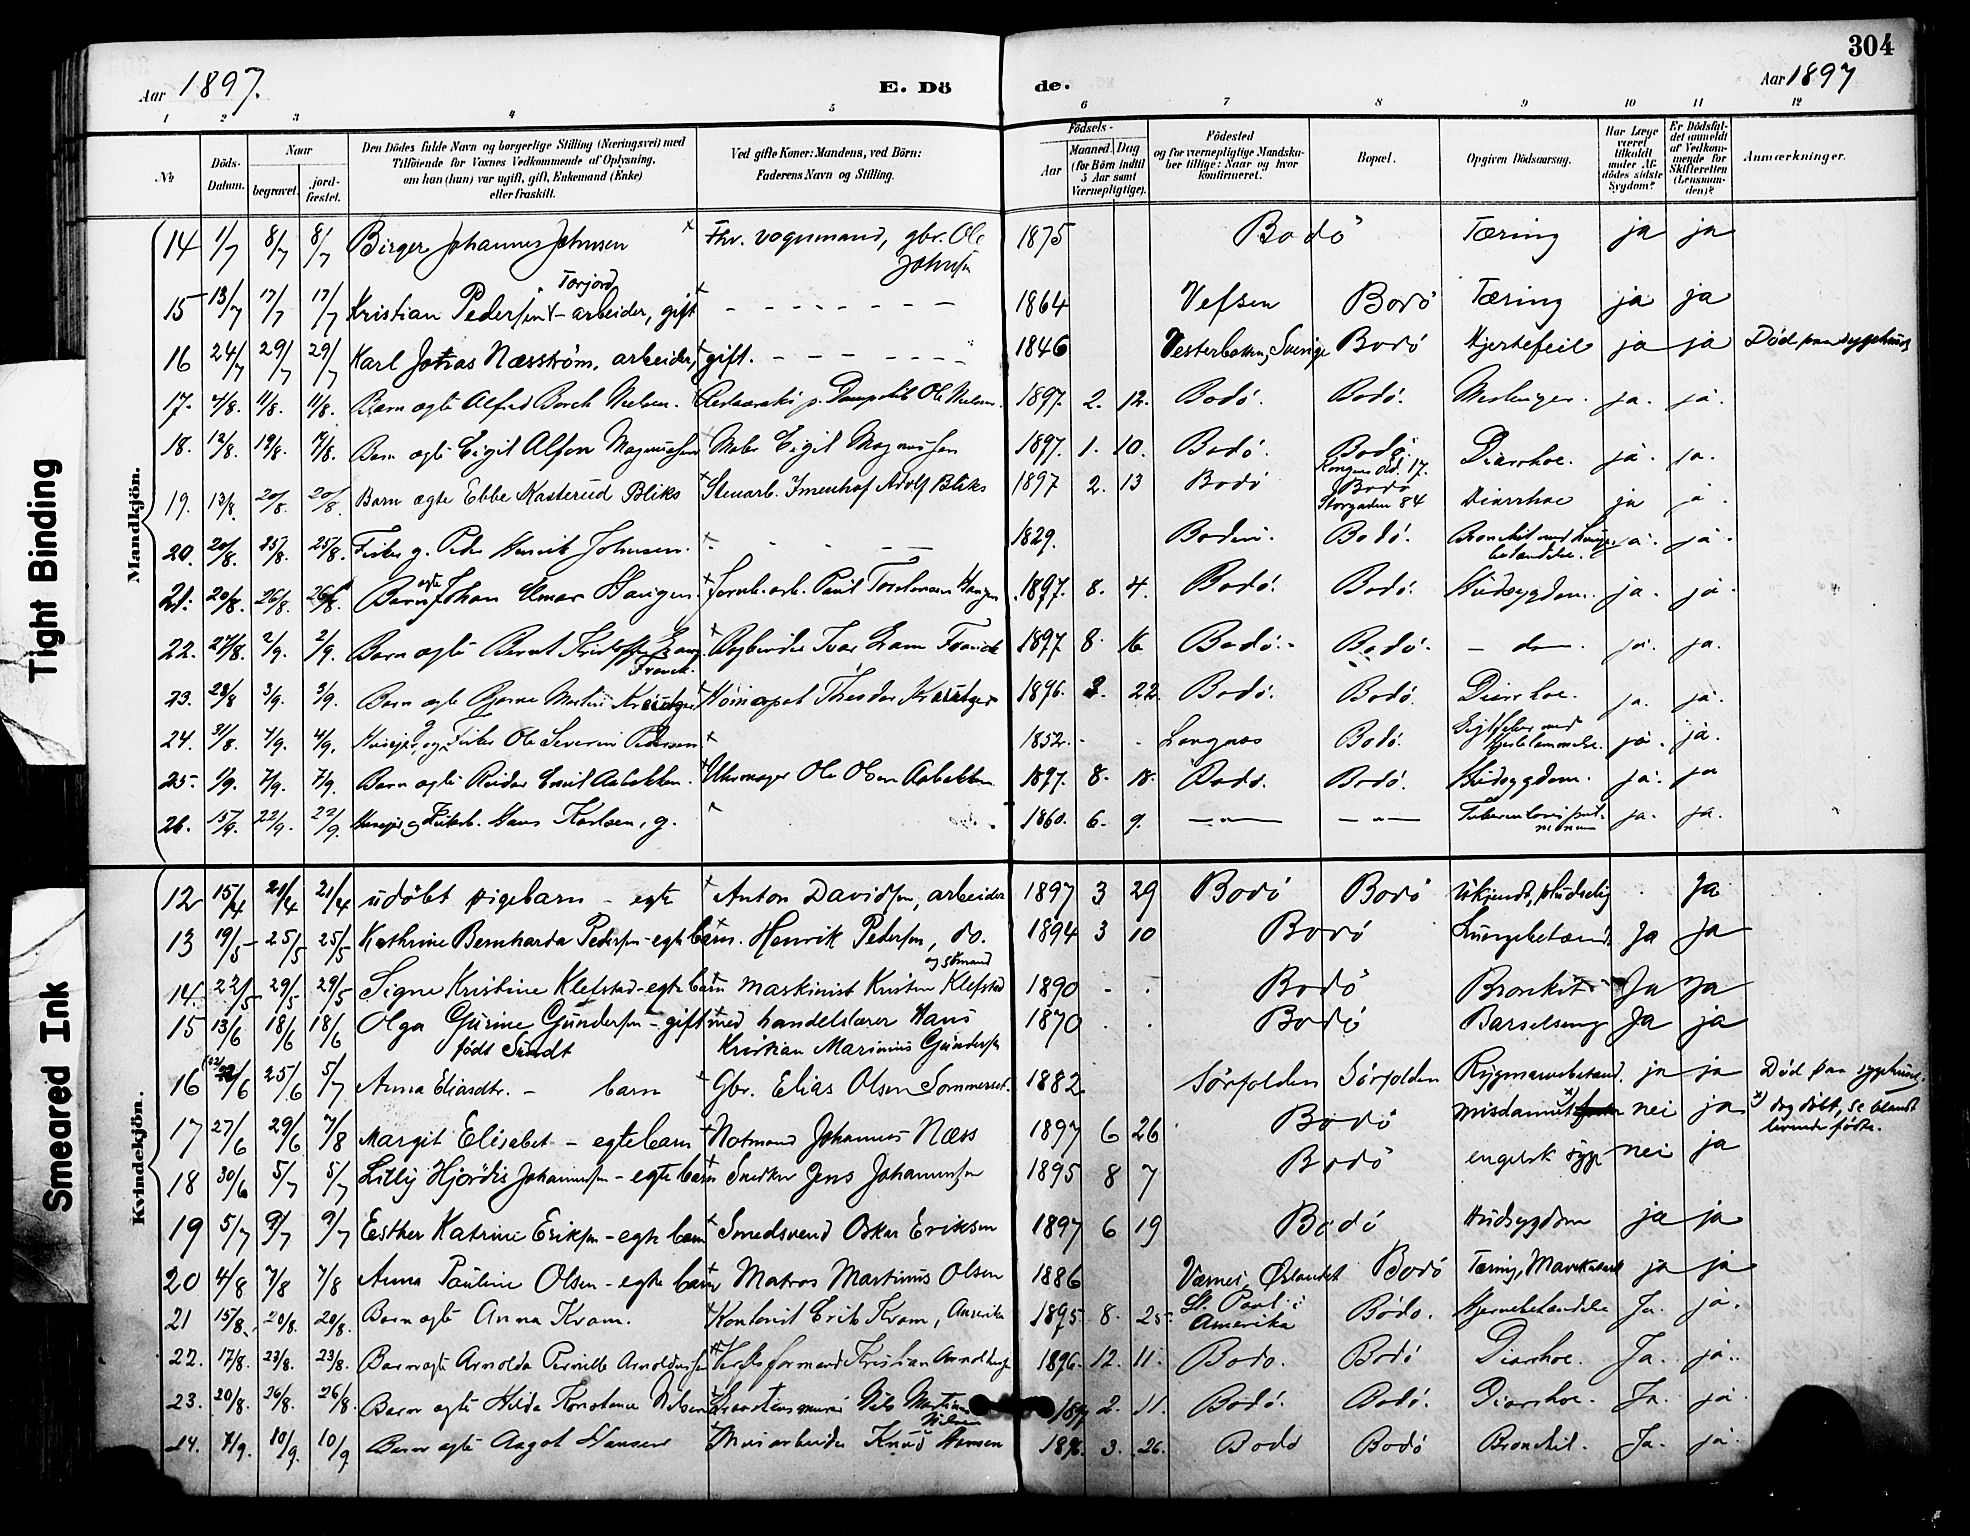 304
Aar 1897.
E. Dö
de.
Aar 1897
1 2 3 4 5 6 7 8 9 10 11 12
No
Döds-Datum.
Naar
begravet.
jord-fæstet.
Den Dödes fulde Navn og borgerlige Stilling (Næringsvei) med
Tilföiende for Voxnes Vedkommende af Oplysning,
om han (hun) var ugift, gift, Enkemand (Enke)
eller fraskilt.
Ved gifte Koner: Mandens, ved Börn:
Faderens Navn og Stilling.
Födsels-
Aar
Maaned. Dag
(for Börn indtil
5 Aar samt
Værnepligtige).
Födested
og for værnepligtige Mandska-
ber tillige: Naar og hvor
konfirmeret.
Bopæl.
Opgiven Dödsaarsag.
Har Læge
været
tilkaldt
under Af-
dödes sidste
Sygdom?
Er Dödsfal-
det anmeldt
af Vedkom-
mende for
Skifteretten
(Lensman-
den)?
Anmærkninger.
Mandkjön.
14 1/7 8/7 8/7 Birger Johannes Johnsen Fhv. vognmand, gbr. Ole Johnsen 1875 Bodö Tæring ja ja
15 13/7 17/7 17/7 Kristian Pedersen Torjord - arbeider, gift 1864 Vefsen Bodö Tæring ja ja
16 24/7 29/7 29/7 Karl Næsström, arbeider, gift. 1846 Sverige Bodö Hjertefeil ja ja Död paa sygehuset
17. 4/8. 11/8. 11/8. Barn ægte Alfred Borch Nielsen. Ole Nielsen. 1897. 2. 12. Bodö. Bodö. ja. ja.
18. 12/8. 19/8. Barn ægte Eigil Alfon Magnussen Maler Eigil Magnussen 1897. 1. 10. Bodö. Bodö. Diarrhoe. ja. ja.
19. 13/8. 20/8. 20/8. Barn ægte Ebbe Kasterud Bliks Stenarb. Adolf Bliks 1897 2. 13 Bodö Bodö Storgaden 84 Diarrhoe ja
20. 20/8. 25/8. 25/8. Fisker g. Peder Henrik Johnsen. 1829. Bodin. Bodö. Bronchit med Lunge-betændelse. ja. ja.
21. 20/8. 26/8. 26/8. Barn ægte Johan Elmar Haugen 1897. 8. 4. Bodö. Bodö. Hudsygdom. ja. ja.
22. 27/8. 2/9. 2/9. Barn ægte Bernt Franck. Bogbinder Ivar Franck 1897. 8. 16 Bodö. Bodö. - do -. ja. ja.
23. 28/8 3/9. 3/9. Barn ægte Bjarne Martin Theodor 1896. 3. 22. Bodö. Bodö. Diarrhoe. ja. ja.
24. 31/8. 7/9. Huseier og Fisker Ole Severin Pedersen 1852. Bodö. ja. ja.
25 1/9. 7/9. 7/9. Barn ægte Reidar Emil Aabakken. Uhrmager Ole Olsen Aabakken 1897. 8. 18. Bodö. Bodö. Hudsygdom. ja. ja
26. 15/9. 22/9. 22/9. Huseier og Fiskerb. Hans Karlsen, g. 1860. 6. 9. ja. ja.
Kvindekjön.
12 15/4 21/4 21/4 udöbt pigebarn - egte Anton Davidsen, arbeider 1897 3 29 Bodö Bodö Ukjendt, pludselig Ja
13 19/5 25/5 25/5 Kathrine Bernharda Pedersen - egte barn. Henrik Pedersen, do. og sömand 1894 3 10 Bodö Lungebetænd. Ja Ja
14. 22/5 29/5 29/5 Signe Kristine Klefstad - egte barn maskinist Kristen Klefstad 1890 Bodö Bronkit Ja Ja
15 13/6 18/6 18/6 Olga Gurine Gundersen - gift med handelslærer Hans
födt Sundt Kristian Marinius Gundersen 1870 Bodö Barselseng Ja ja
16 22/6 25/6 5/7 Anna Eliasdtr. - barn Gbr. Elias Olsen Sommerset. 1882 Sörfolden Sörfolden Rygmarvsbetænd. ja ja Död paa sygehuset.
17 27/6 29/6 7/8 Margit Elisabet - egte barn Notmand Johannes Næss 1897 6 26 Bodö misdannet x) nei ja x) dog döbt, se blandt levende födte.
18 30/6 5/7 5/7 Lilly Hjördis Johannessen - egte barn Snedker Jens Johannessen 1895 8 7 Bodö engelsk syge nei ja
19 5/7 9/7 9/7 Esther Katrine Eriksen - egte barn Smedsvend Oskar Eriksen 1897 6 19 Bodö Hudsygdom ja ja
20 4/8 7/8 7/8 Anna Pauline Olsen - egte barn Matros Martinus Olsen 1886 Værnes, Bodö Tæring, ja ja
21 15/8. 20/8. 20/8. Barn ægte Anna Kram. Kontorist Erik Kram, Amerika 1895 8. 25 St. Paul i Amerika Bodö. Hjernebetændelse Ja. ja.
22. 17/8. 23/8. 23/8. Barn ægte Arnolda Pernille Arnoldussen Kristian Arnoldussen 1896. 12. 11. Bodö. Bodö Diarrhoe. Ja. ja.
23. 20/8. 26/8. 26/8. Barn ægte Hilda Konstance Nilsen Nils Martin Nilsen 1897 2. 11. Bodö. Bodö. Diarrhoe. Ja. ja
24. 7/9. 10/9 10/9 Barn ægte Aagot Hansen Knud Hansen 1896. 3. 26. Bodö Bodö Bronchit. Ja. ja.
Tight Binding
Smeared Ink